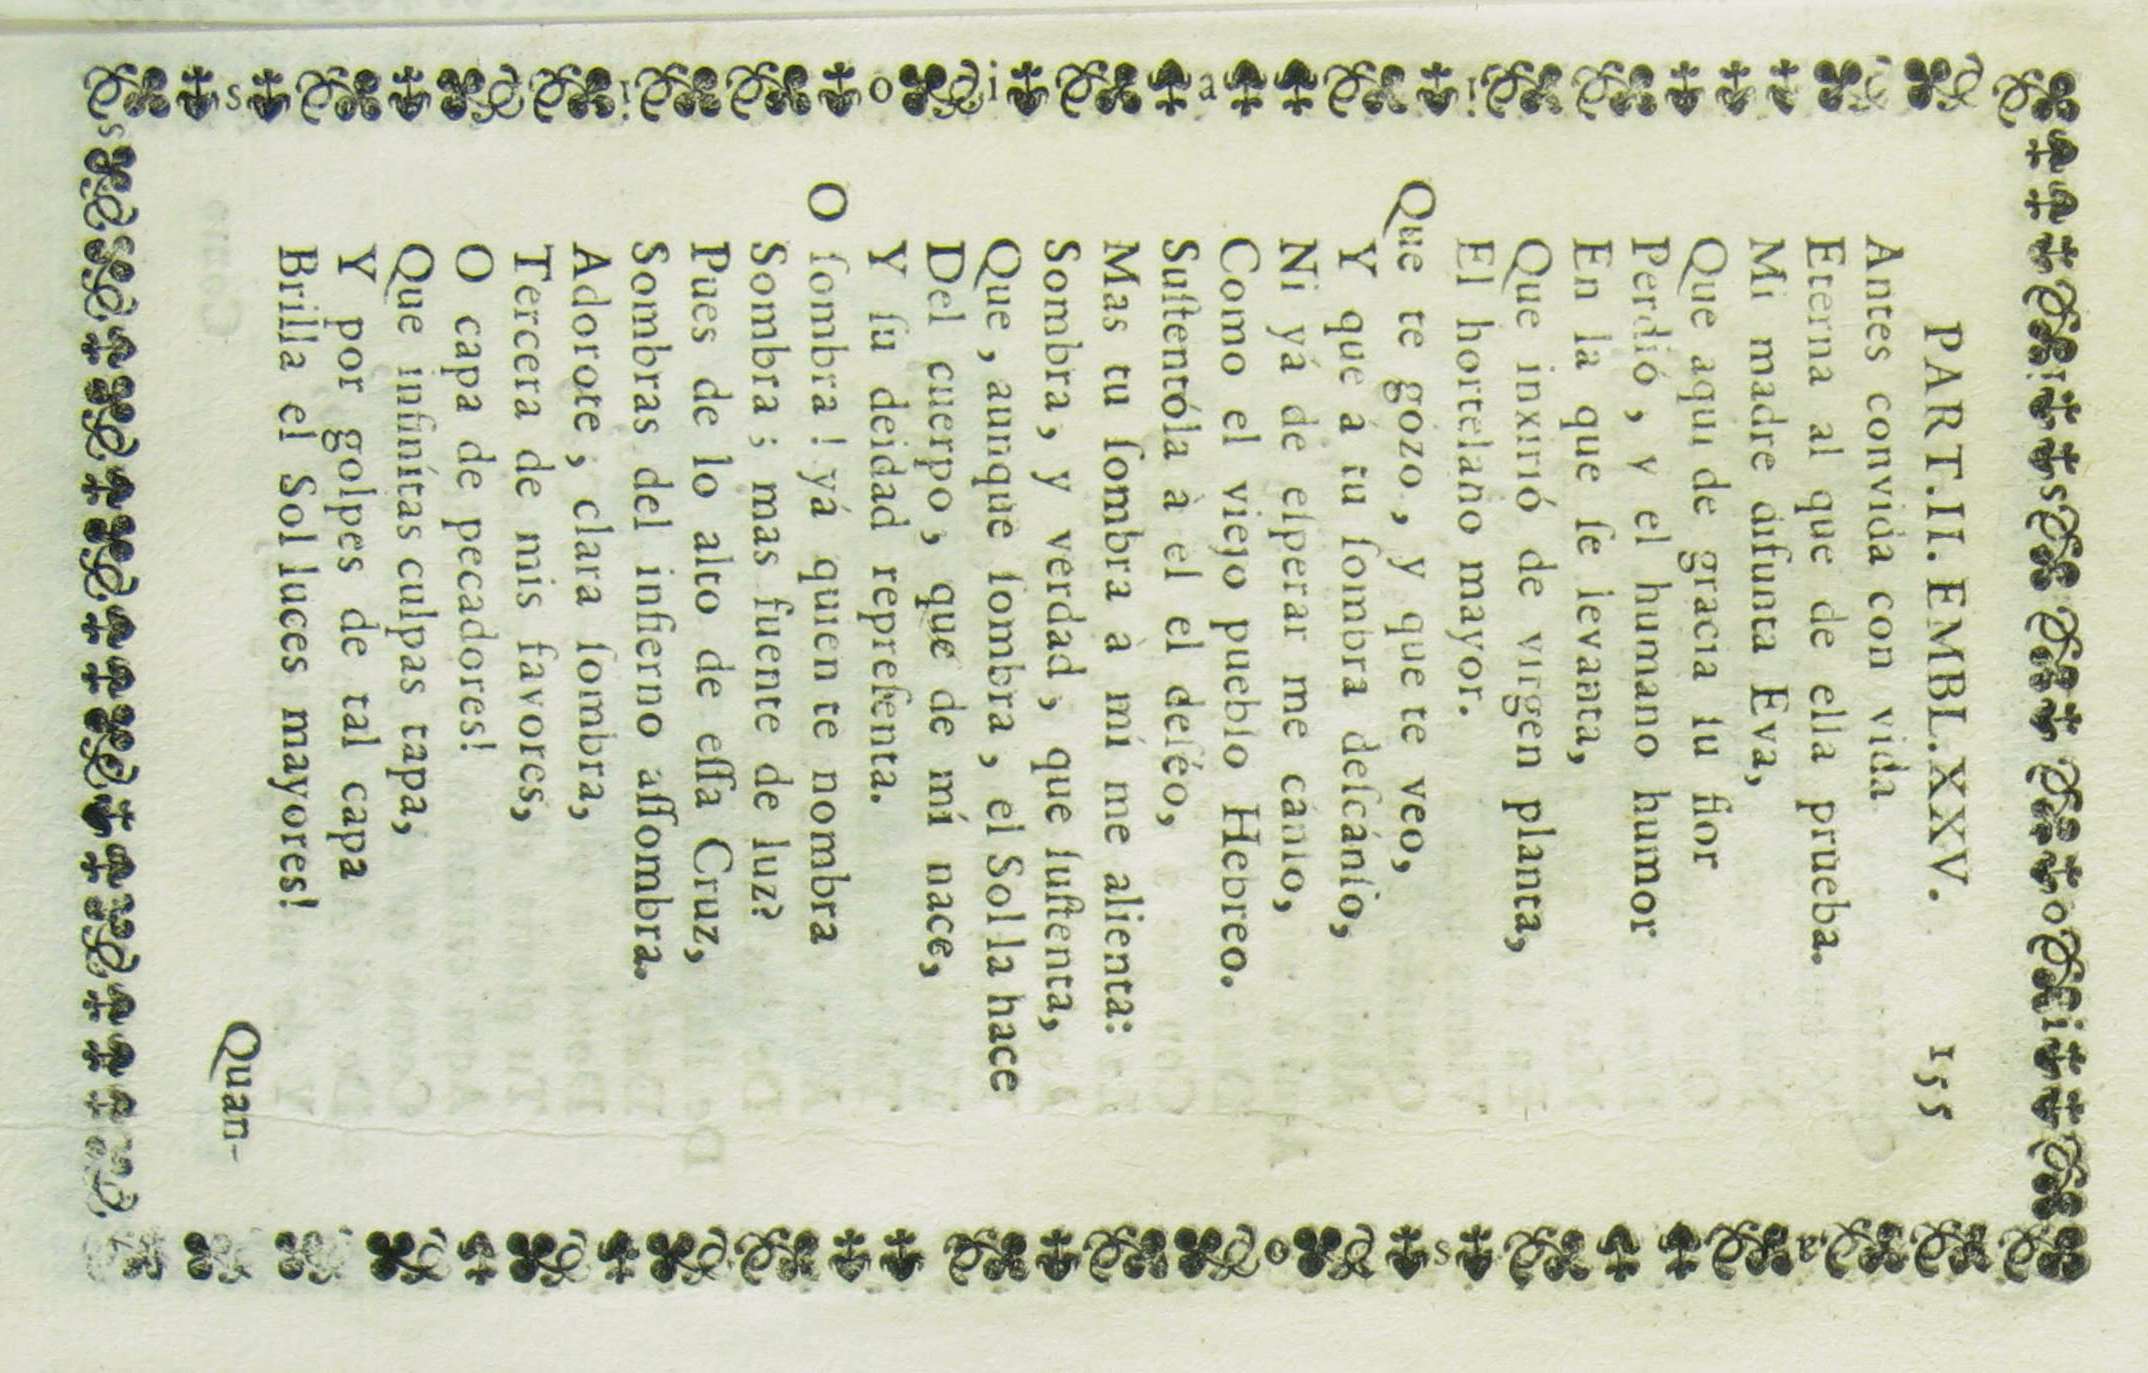 PART.II. EMBL.XXV. 155
Antes convida con vida
Eterna al que de ella prueba.
Mi madre difunta Eva,
Que aqui de gracia ſu flor
Perdió, y el humano humor
En la que ſe levanta,
Que inxirió de virgen planta,
El hortelano mayor.
Que te gozo, y que te veo,
Y que á tu ſombra deſcánſo,
Ni yá de eſperar me cánſo,
Como el viejo pueblo Hebreo.
Suſtentóla à el el deſéo,
Mas tu ſombra à mí me alienta:
Sombra, y verdad, que ſuſtenta,
Que, aunque ſombra, el Sol la hace
Del cuerpo, que de mí nace,
Y ſu deidad repreſenta.
O ſombra! yá quien te nombra
Sombra; mas fuente de luz?
Pues de lo alto de eſſa Cruz,
Sombras del infierno aſſombra.
Adorote, clara ſombra,
Tercera de mis favores,
O capa de pecadores!
Que infinítas culpas tapa,
Y por golpes de tal capa
Brilla el Sol luces mayores!
Quan-